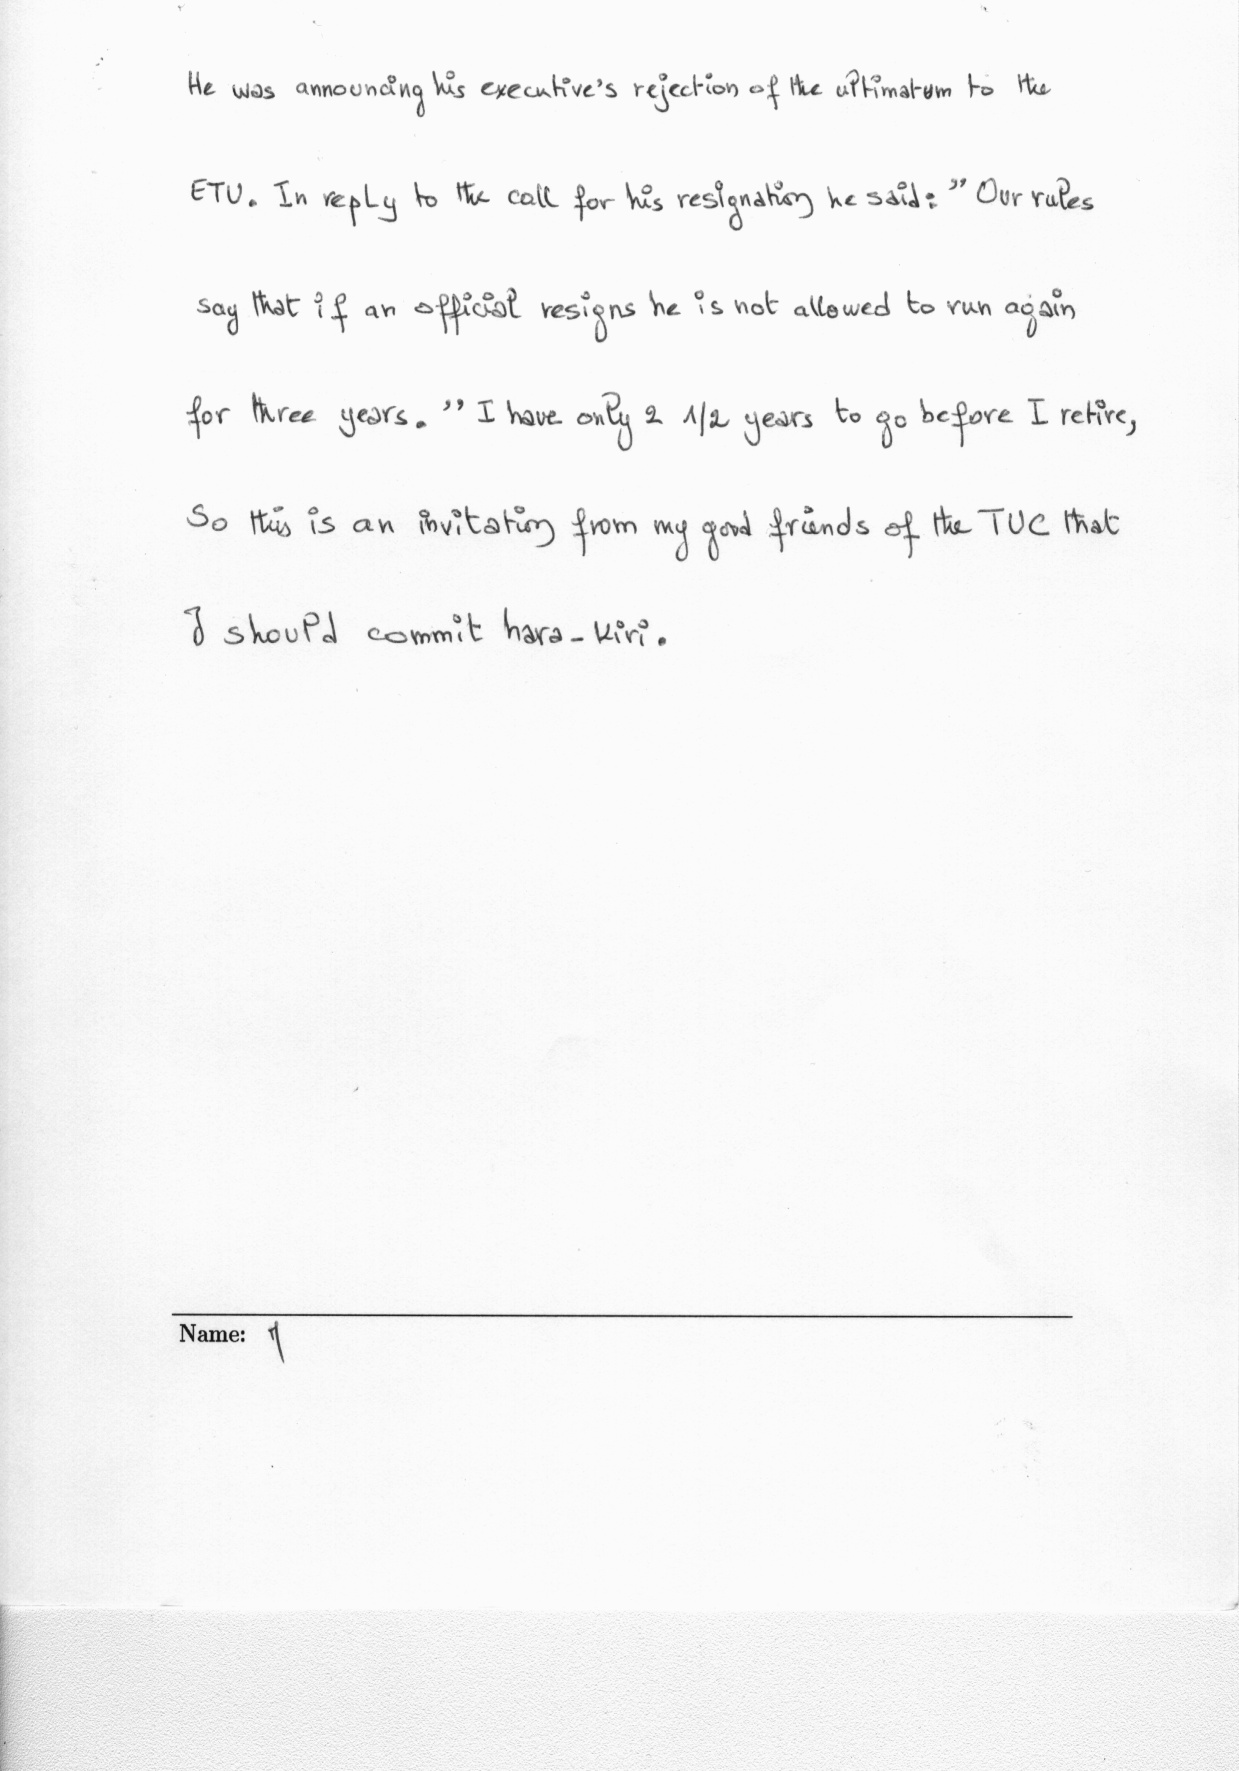 He was announcing his executive's rejection of the ultimatum to the
ETU. In reply to the call for his resignation he said: " Our rules
say that if an official resigns he is not allowed to run again
for three years. " I have only 2 1/2 years to go before I retire,
So this is an invitation from my good friends of the TUC that
I should commit hara-kiri.
Name: